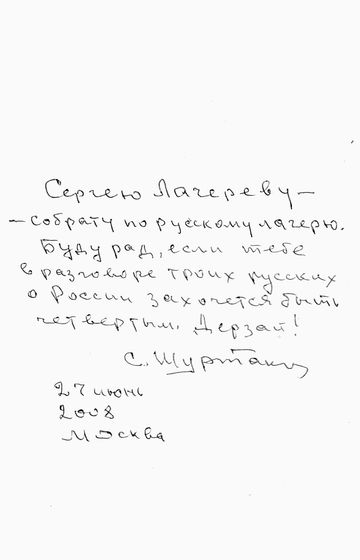 Сергею Лагереву —
— собрату по русскому лагерю.
Буду рад, если тебе
в разговоре троих русских
о России захочется быть
четвертым. Дерзай!
С. Шуртаков
27 июнь
2008
Москва